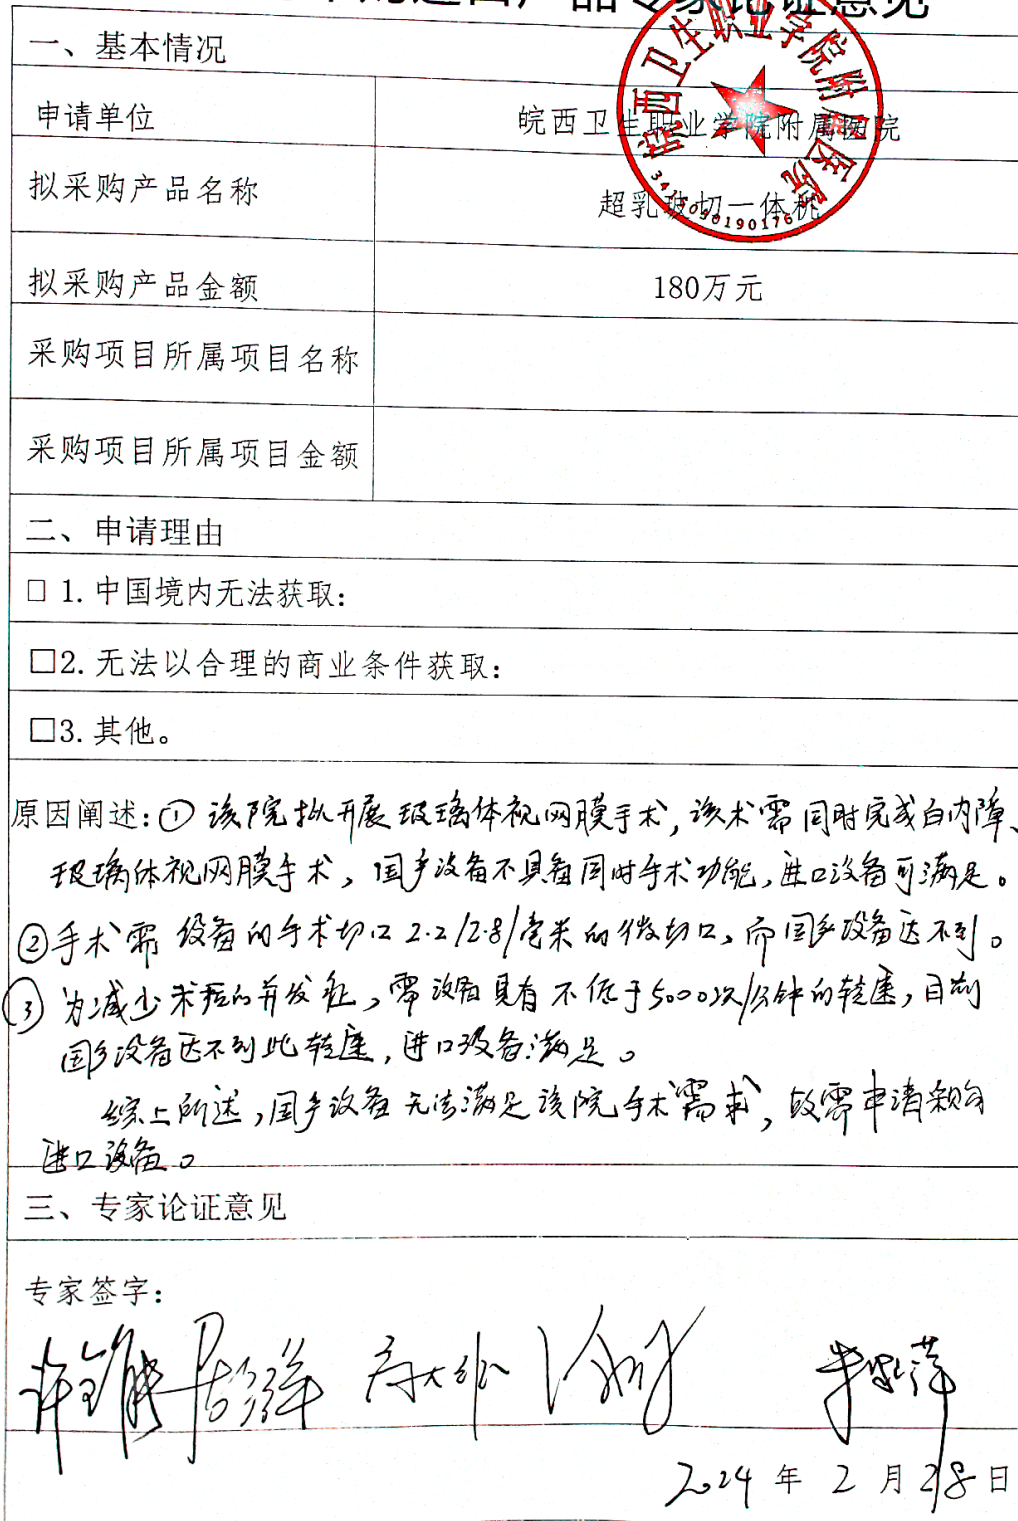 进口产品专家论证意见
一、基本情况
申请单位
皖西卫生职业学院附属医院
皖西卫生职业学院附属医院
拟采购产品名称
超乳玻切一体机
拟采购产品金额
180万元
采购项目所属项目名称
采购项目所属项目金额
二、申请理由
□ 1.中国境内无法获取:
□2.无法以合理的商业条件获取:
□3.其他。
原因阐述:① 该院拟开展玻璃体视网膜手术,该术需同时完成白内障、
玻璃体视网膜手术,国产设备不具备同时手术功能,进口设备可满足。
②手术需设备的手术切口2.2/2.8/毫米的微切口,而国产设备达不到。
③ 为减少术后的并发症,需设备具有不低于5000次/分钟的转速,目前
国产设备达不到此转速,进口设备满足。
综上所述,国产设备无法满足该院手术需求,故需申请采购
进口设备。
三、专家论证意见
专家签字:
2024年2月28日